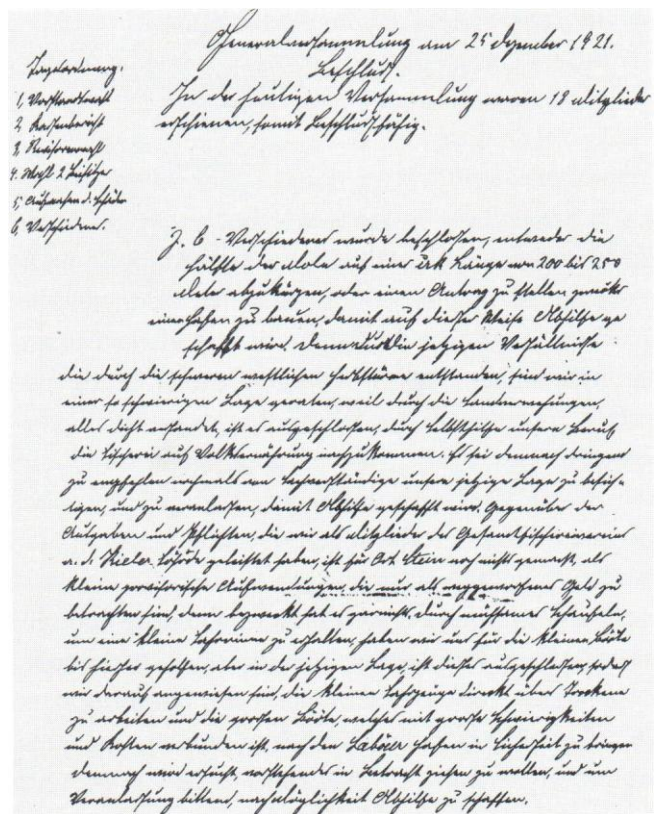 Generalversammlung am 25 Dezember 1921.
Beschluß.
Tagesordnung.
1, Vorstandswahl
2 Kassenbericht
3,
4. Wahl 2 Beisitzer
5, Aufnahmen d.
6, Verschiedenes.
In der heutigen Versammlung waren 18 Mitglieder
erschienen, somit Beschlußfähig.
Z. 6 - Verschiedenes wurde beschlossen, entweder die
Hälfte der Mole auf einer Länge von 200 bis 250
Meter abzukürzen, oder einen Antrag zu stellen
einen Hafen zu bauen, damit auf dieser Weise Abhilfe ge
schafft wird. Denn durch die jetzigen Verhältnisse
die durch die schweren westlichen Herbststürme entstanden, sind wir in
einer so schwierigen Lage geraten, weil durch die Landverwehungen,
alles dicht versandet, ist es ausgeschlossen, durch Selbsthilfe unsern Beruf
die Fischerei auf Volksernährung nachzukommen. Es sei demnach dringend
zu empfehlen nochmals von Sachverständige unsere jetzige Lage zu besich-
tigen, und zu veranlassen, damit Abhilfe geschafft wird. Gegenüber der
Aufgaben und Pflichten, die wir als Mitglieder des Gesamtfischereivereins
a. d. Kieler Föhrde geleistet haben, ist für Ort Stein noch nichts gemacht, als
kleine provisorische Aufwendungen, die nur als weggeworfenes Geld zu
betrachten sind, denn bezweckt hat es garnichts, durch mühsames Schaufeln,
um eine kleine Fahrrinne zu erhalten, haben wir uns für die kleinen Böte
bis hierher geholfen, aber in der jetzigen Lage, ist dieses ausgeschlossen, sodaß
wir darauf angewiesen sind, die kleinen Fahrzeuge direkt über Trockene
zu arbeiten und die großen Böte, welches mit große Schwierigkeiten
und Kosten verbunden ist, nach den Laböer Hafen in Sicherheit zu bringen
demnach wird ersucht, vorstehendes in Betracht ziehen zu wollen, und um
Veranlassung bittend, nach Möglichkeit Abhilfe zu schaffen.